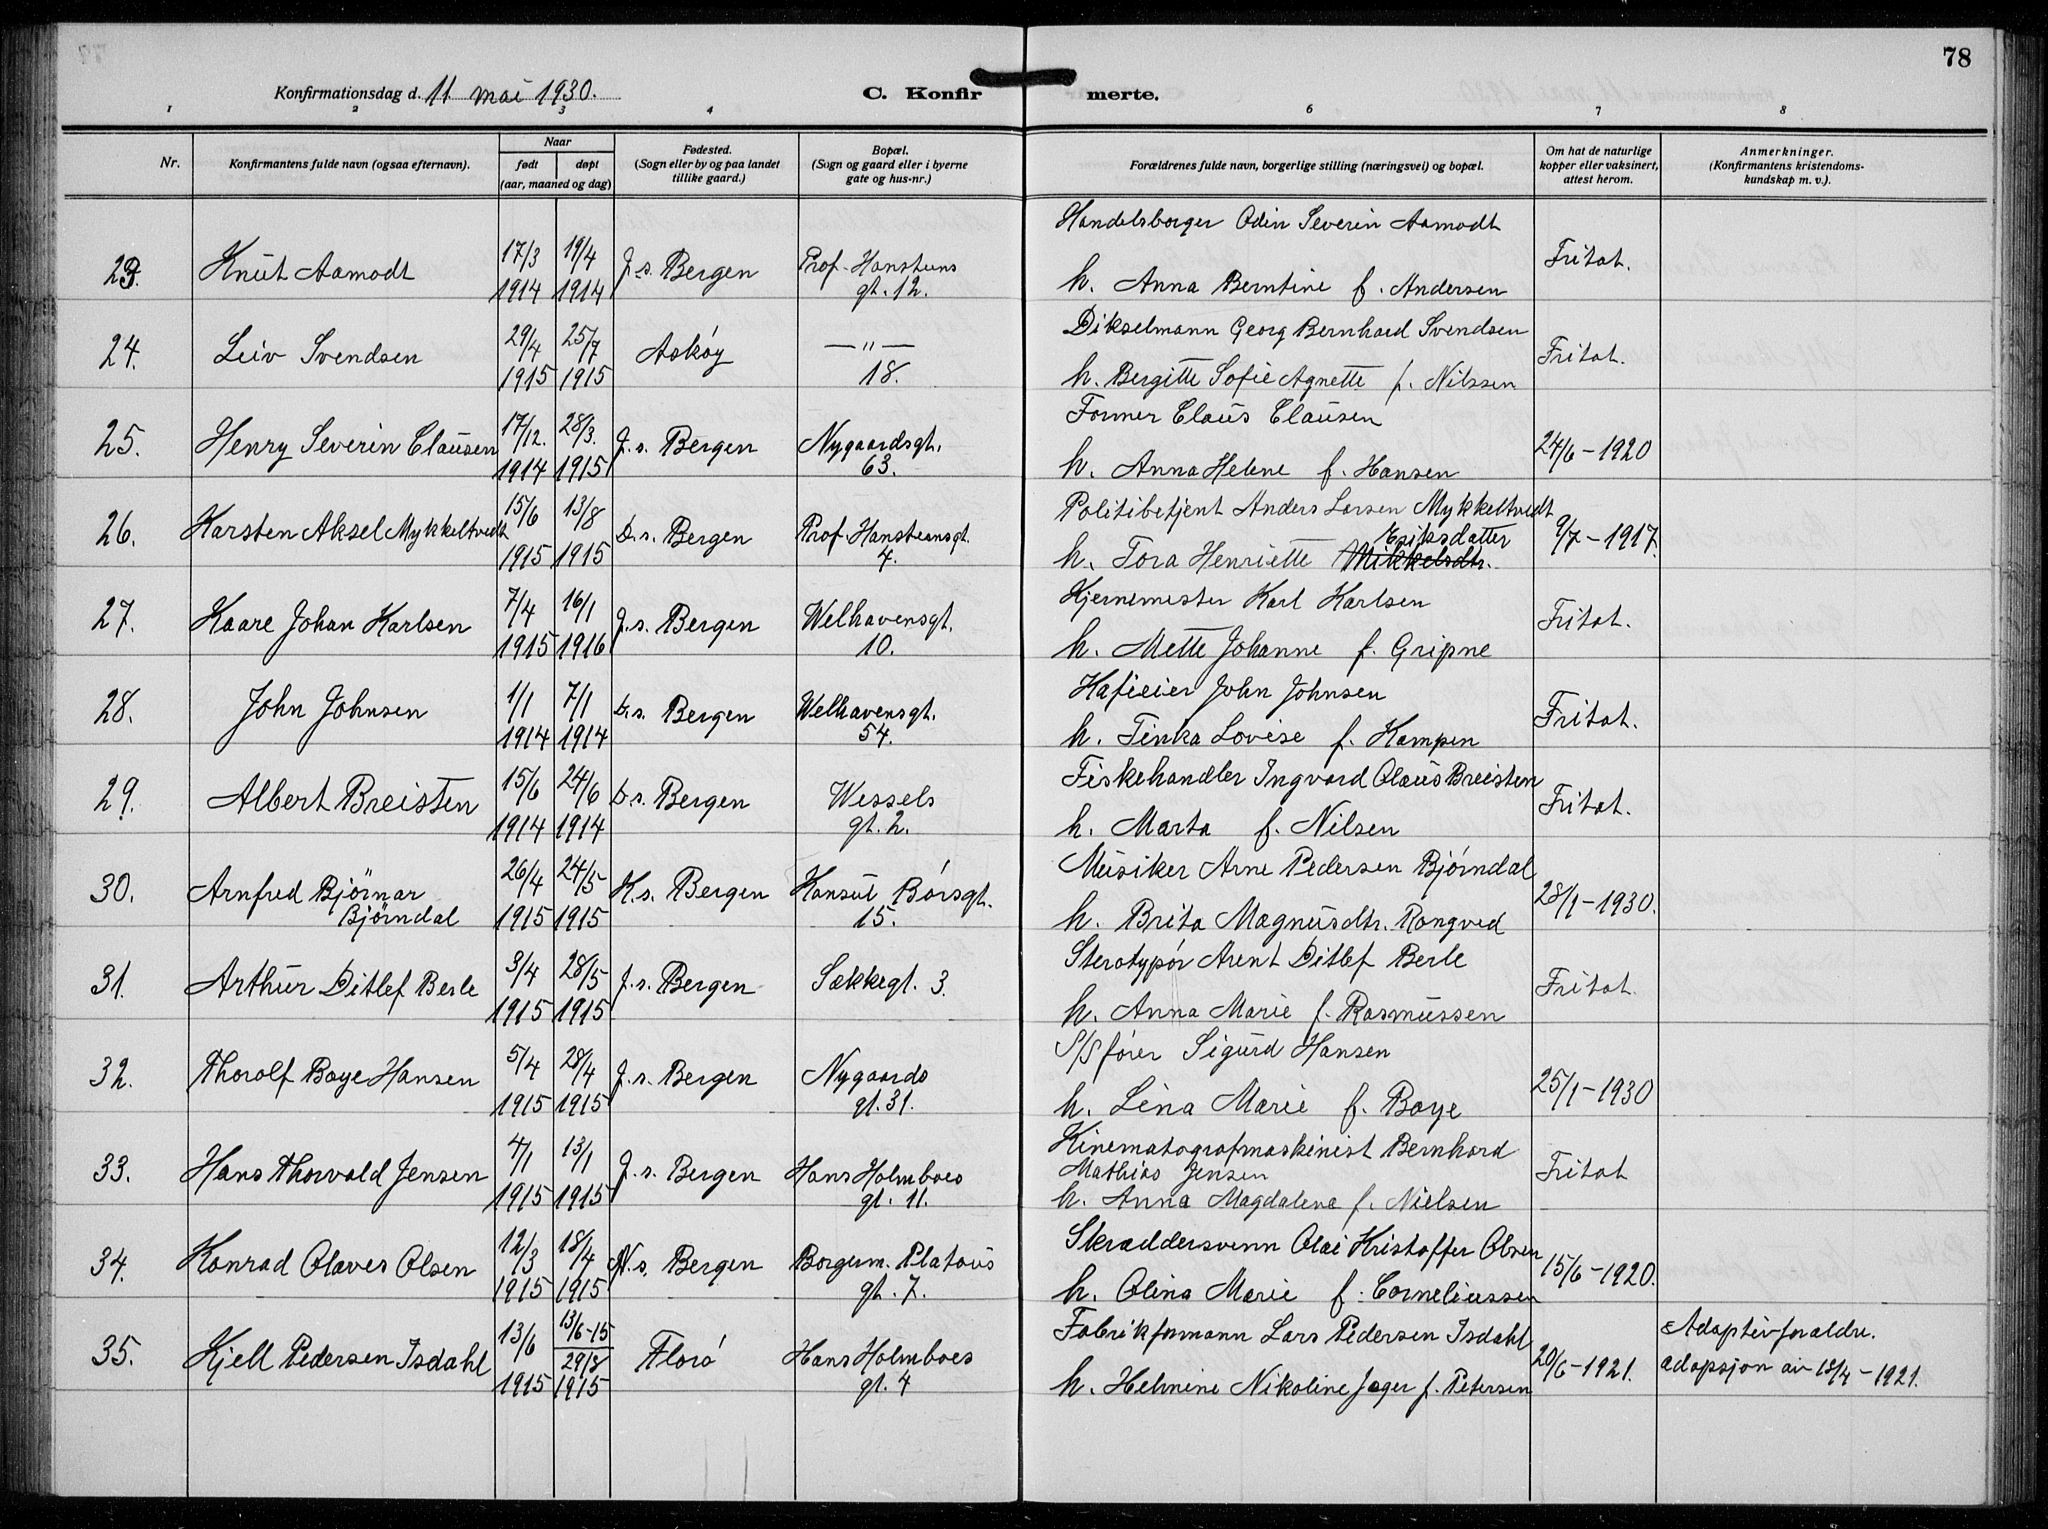 78
Konfirmationsdag d. 11. mai 1930.
C. Konfirmerte.
1 2 3 4 6 7 8
Nr.
Konfirmantens fulde navn (ogsaa efternavn).
Naar
født døpt
(aar, maaned og dag)
Fødested.
(Sogn eller by og paa landet
tillike gaard.)
Bopæl.
(Sogn og gaard eller i byerne
gate og hus-nr.)
Forældrenes fulde navn, borgerlige stilling (næringsvei) og bopæl.
Om hat de naturlige
kopper eller vaksinert,
attest herom.
Anmerkninger.
(Konfirmantens kristendoms-
kundskap m. v.).
Handelsborger Odin Severin Aamodt
23. Knut Aamodt 17/3 19/4 J. s. Bergen Prof. Hansteens Fritat.
1914 1914 gt. 12. h. Anna Berntine f. Andersen
29/4 25/7 Dikselmann Georg Bernhard Svendsen
24. Leiv Svendsen Askøy — " — Fritat.
1915 1915 18. h. Bergitte Sofie Agnette f. Nilssen
17/12. 28/3. Former Claus Clausen
25. Henry Severin Clausen J. s. Bergen Nygaardsgt. 24/6 - 1920
1914 1915 63. h. Anna Helene f. Hansen
15/6 13/8 Politibetjent Anders Larsen Mykkeltvedt
26. Karsten Aksel Mykkeltvedt D. s. Bergen Prof. Hansteensgt. Eriksdatter 9/7 - 1917.
1915 1915 4. h. Tora Henriette Mikkelsdtr.
7/4 16/1 Kjernemester Karl Karlsen
27. Kaare Johan Karlsen J. s. Bergen Welhavensgt. Fritat.
1915 1916 10. h. Mette Johanne f. Gripne
1/1 7/1 Kafieier John Johnsen
28. John Johnsen D. s. Bergen Welhavensgt. Fritat.
1914 1914 54. h. Tinka Lovise f. Kampen
15/6 24/6 Fiskehandler Ingvard Olaus Breisten
29. Albert Breisten D. s. Bergen Wessels Fritat.
1914 1914 gt. 2. h. Marta f. Nilsen
26/4 24/5 Musiker Arne Pedersen Bjørndal
30. Arnfred Bjørnar K. s. Bergen Konsul Børsgt. 28/1 - 1930.
Bjørndal 1915 1915 15. h. Brita Magnusdtr. Rongved
3/4 28/5 Sterotypør Arent Ditlef Berle
31. Arthur Ditlef Berle J. s. Bergen Sækkegt. 3. Fritat.
1915 1915 h. Anna Marie f. Rasmussen
5/4 28/4 S/S fører Sigurd Hansen
32. Thorolf Boye Hansen J. s. Bergen Nygaards 25/1 - 1930
1915 1915 gt. 31. h. Lina Marie f. Boye
4/1 13/1 Kinematografmaskinist Bernhard
33. Hans Thorvald Jensen J. s. Bergen Hans Holmboes Mathias Jensen Fritat
1915 1915 gt. 11. h. Anna Magdalene f. Nielsen
12/3 18/4 Skræddersvenn Olai Kristoffer Olsen
34. Konrad Olaves Olsen N. s. Bergen Borgerm. Platous 15/6 - 1920.
1915 1915 gt. 7. h. Olina Marie f. Corneliussen
13/6 13/6-15 Fabrikformann Lars Pedersen Isdahl Adoptivforældre.
35. Kjell Pedersen Isdahl 29/8 Florø Hans Holmboes 20/6 - 1921. adopsjon av 18/4 - 1921.
1915 1915 gt. 4 h. Helmine Nikoline Jæger f. Petersen